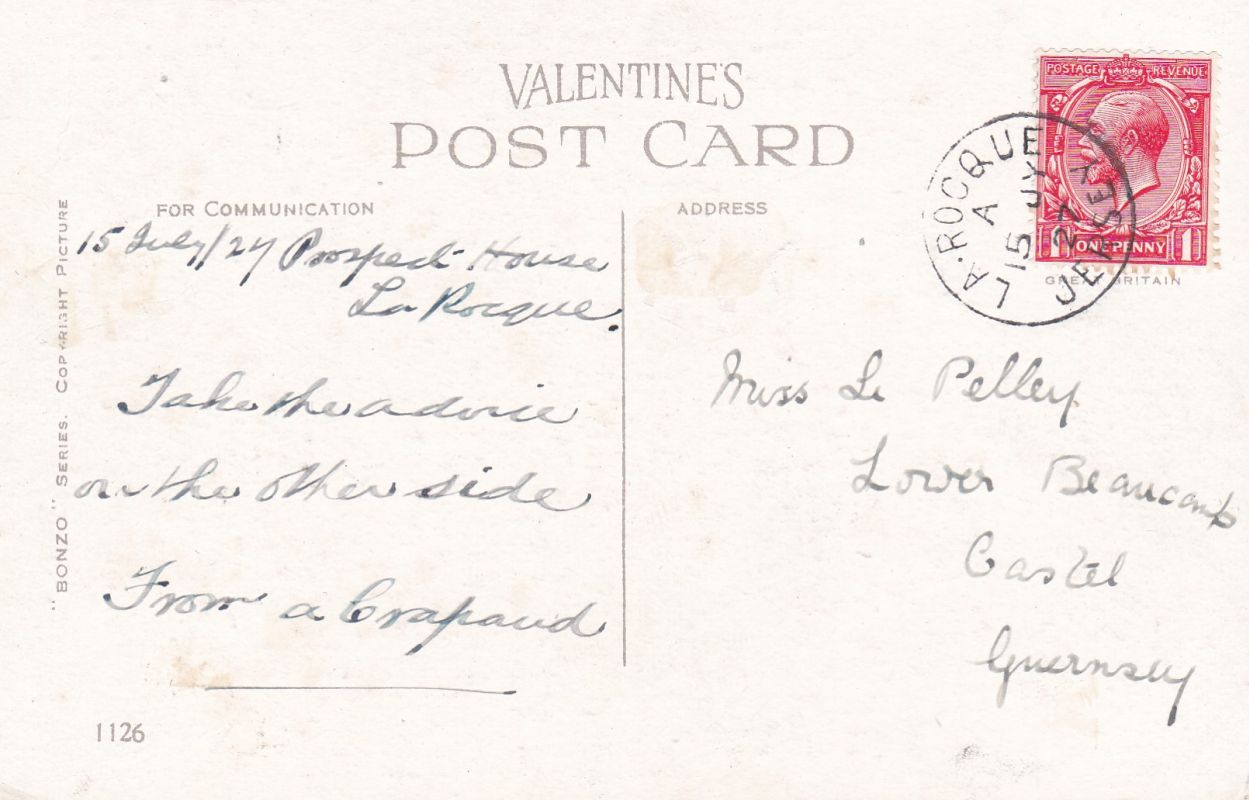 VALENTINE'S
POST CARD
FOR COMMUNICATION
ADDRESS
"BONZO" SERIES. COPYRIGHT PICTURE
15 July/27 Prospect House
La Rocque.
Take the advice
on the other side
From a Crapaud
1126
POSTAGE REVENUE
ONE PENNY
1 1
GREAT BRITAIN
LA·ROCQUE
A
15 JY
27
JERSEY
Miss Le Pelley
Lower Beaucamp
Castel
Guernsey